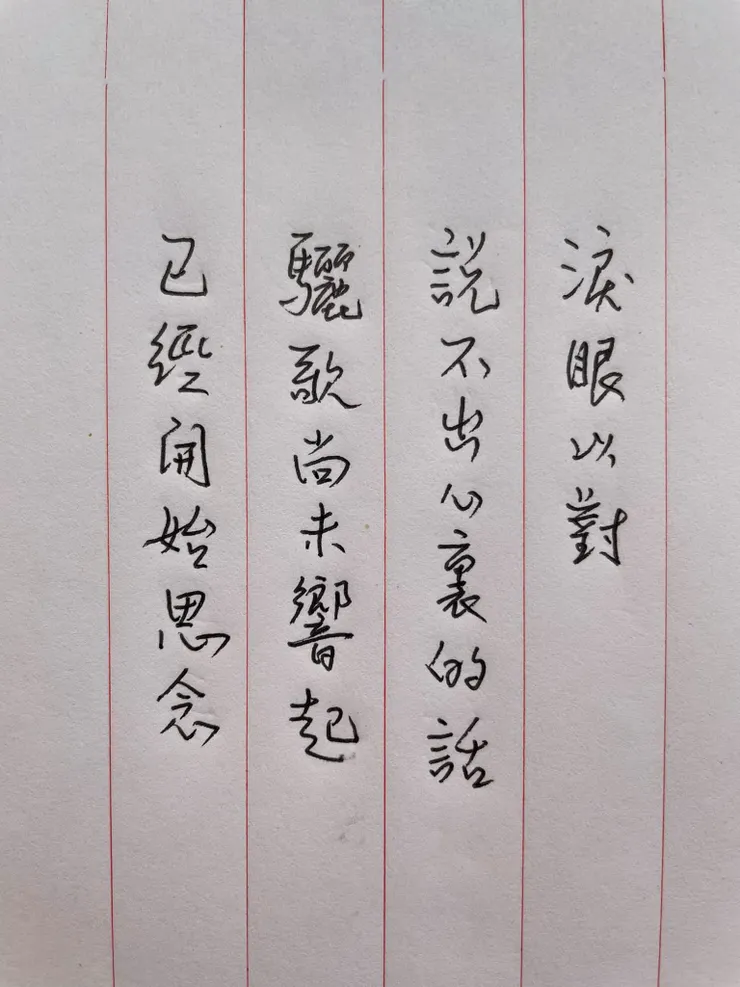 淚眼以對
說不出心裏的話
驪歌尚未響起
已經開始思念